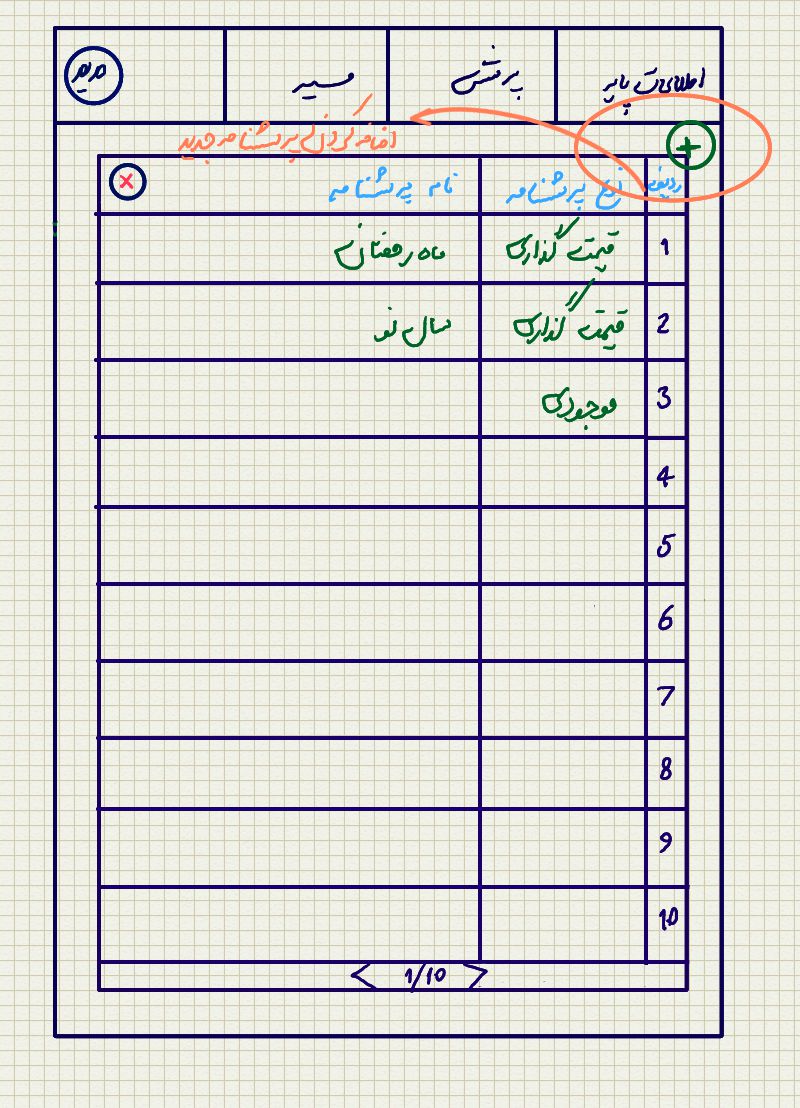 اطلاعات پایه
پرسش
مسیر
مدیر
+
اضافه کردن پرسشنامه جدید
ردیف نوع پرسشنامه نام پرسشنامه ×
1 قیمت گذاری ماه رمضان
2 قیمت گذاری سال نو
3 موجودی
4
5
6
7
8
9
10
< 1/10 >